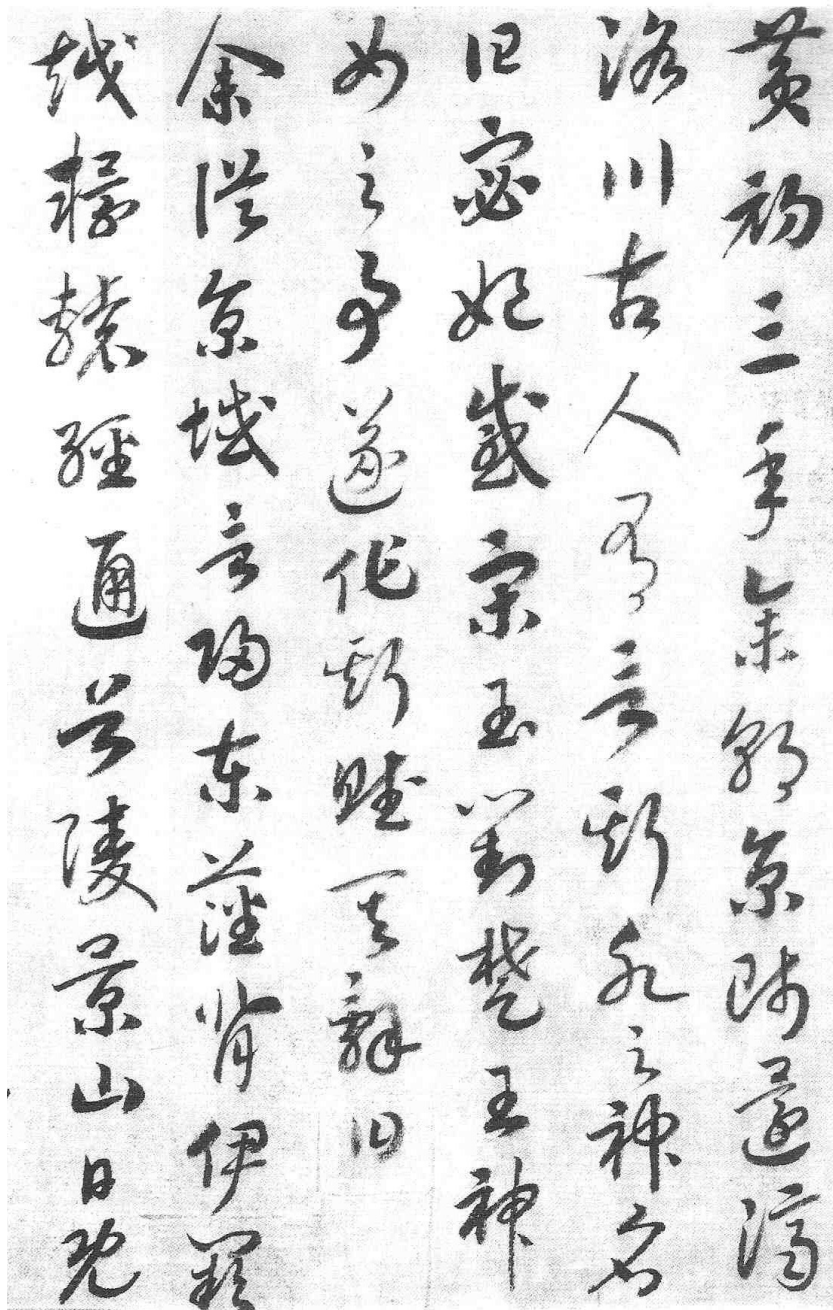 黄初三年余朝京師還濟
洛川古人有言斯水之神名
曰宓妃感宋玉對楚王神
女之事遂作斯賦其辭曰
余從京域言歸東藩背伊闕
越轘轅經通谷陵景山日既